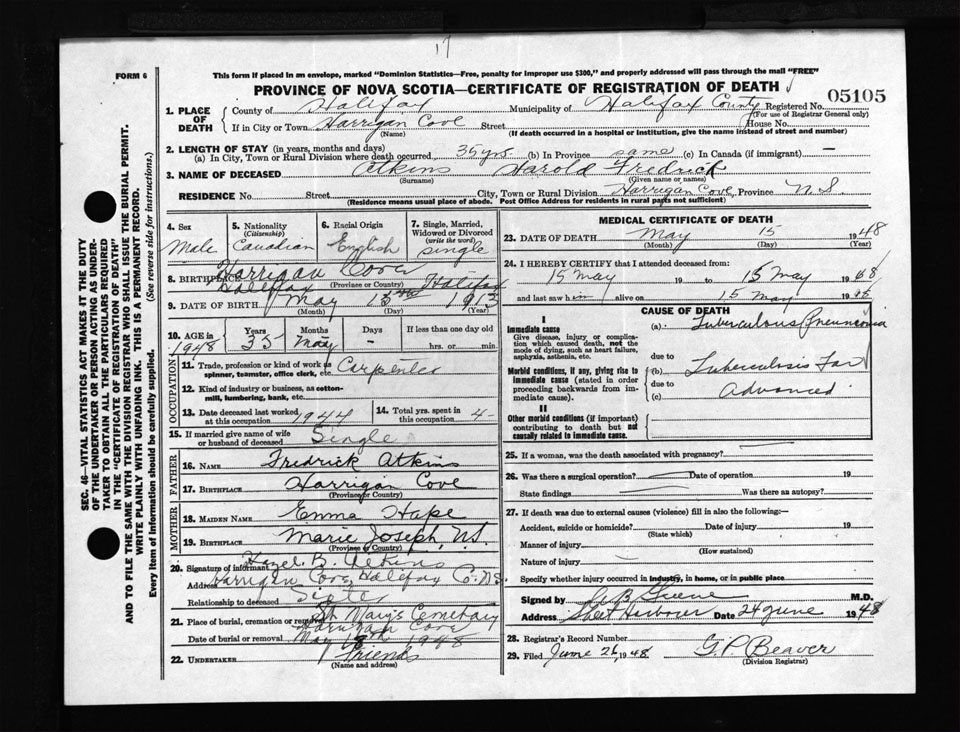 17
FORM 6
This form if placed in an envelope, marked "Dominion Statistics—Free, penalty for improper use $300," and properly addressed will pass through the mail "FREE"
PROVINCE OF NOVA SCOTIA—CERTIFICATE OF REGISTRATION OF DEATH
05105
1. PLACE OF DEATH County of Halifax Municipality of Halifax County Registered No.
(For use of Registrar General only)
If in City or Town Harrigan Cove Street House No.
(Name) (If death occurred in a hospital or institution, give the name instead of street and number)
2. LENGTH OF STAY (in years, months and days)
(a) In City, Town or Rural Division where death occurred 35 yrs. (b) In Province same (c) In Canada (if immigrant) —
3. NAME OF DECEASED Atkins Harold Fredrick
(Surname) (Given name or names)
RESIDENCE No. Street City, Town or Rural Division Harrigan Cove, Province N.S.
(Residence means usual place of abode. Post Office Address for residents in rural parts not sufficient)
SEC. 46—VITAL STATISTICS ACT MAKES IT THE DUTY
OF THE UNDERTAKER OR PERSON ACTING AS UNDER-
TAKER TO OBTAIN ALL THE PARTICULARS REQUIRED
IN THE "CERTIFICATE OF REGISTRATION OF DEATH"
AND TO FILE THE SAME WITH THE DIVISION REGISTRAR WHO SHALL ISSUE THE BURIAL PERMIT.
WRITE PLAINLY WITH UNFADING INK. THIS IS A PERMANENT RECORD.
Every item of Information should be carefully supplied. (See reverse side for instructions.)
4. Sex 5. Nationality (Citizenship) 6. Racial Origin 7. Single, Married, Widowed or Divorced (write the word)
Male Canadian English single
8. BIRTHPLACE Harrigan Cove Halifax Halifax
(Province or Country)
9. DATE OF BIRTH May 15th 1913
(Month) (Day) (Year)
10. AGE in Years Months Days If less than one day old
1948 35 May - hrs. or min.
OCCUPATION
11. Trade, profession or kind of work as spinner, teamster, office clerk, etc. Carpenter
12. Kind of industry or business, as cotton-mill, lumbering, bank, etc.
13. Date deceased last worked at this occupation 1944 14. Total yrs. spent in this occupation 4-
15. If married give name of wife or husband of deceased Single
FATHER
16. NAME Fredrick Atkins
17. BIRTHPLACE Harrigan Cove
(Province or Country)
MOTHER
18. MAIDEN NAME Emma Hape
19. BIRTHPLACE Marie Joseph, N.S.
(Province or Country)
20. Signature of informant Hazel B. Atkins
Address Harrigan Cove, Halifax Co. N.S.
Relationship to deceased Sister
21. Place of burial, cremation or removal St. Mary's Cemetary
Harrigan Cove
Date of burial or removal May 18th 1948
22. UNDERTAKER Friends
(Name and address)
MEDICAL CERTIFICATE OF DEATH
23. DATE OF DEATH May 15 1948
(Month) (Day) (Year)
24. I HEREBY CERTIFY that I attended deceased from:
15 May 19 to 15 May 1948
and last saw him alive on 15 May 1948
CAUSE OF DEATH
I
Immediate cause
Give disease, injury or complication which caused death, not the mode of dying, such as heart failure, asphyxia, asthenia, etc.
(a) Tuberculous Pneumonia
due to
Morbid conditions, if any, giving rise to immediate cause (stated in order proceeding backwards from immediate cause).
(b) Tuberculosis Far
due to
(c) Advanced
II
Other morbid conditions (if important) contributing to death but not causally related to immediate cause.
25. If a woman, was the death associated with pregnancy?
26. Was there a surgical operation? Date of operation 19
State findings Was there an autopsy?
27. If death was due to external causes (violence) fill in also the following:—
Accident, suicide or homicide? Date of injury 19
(State which)
Manner of injury
(How sustained)
Nature of injury
Specify whether injury occurred in industry, in home, or in public place
Signed by M.D.
Address Harbour Date 24 June 1948
28. Registrar's Record Number
29. Filed June 26, 1948 G.P. Beaver
(Division Registrar)